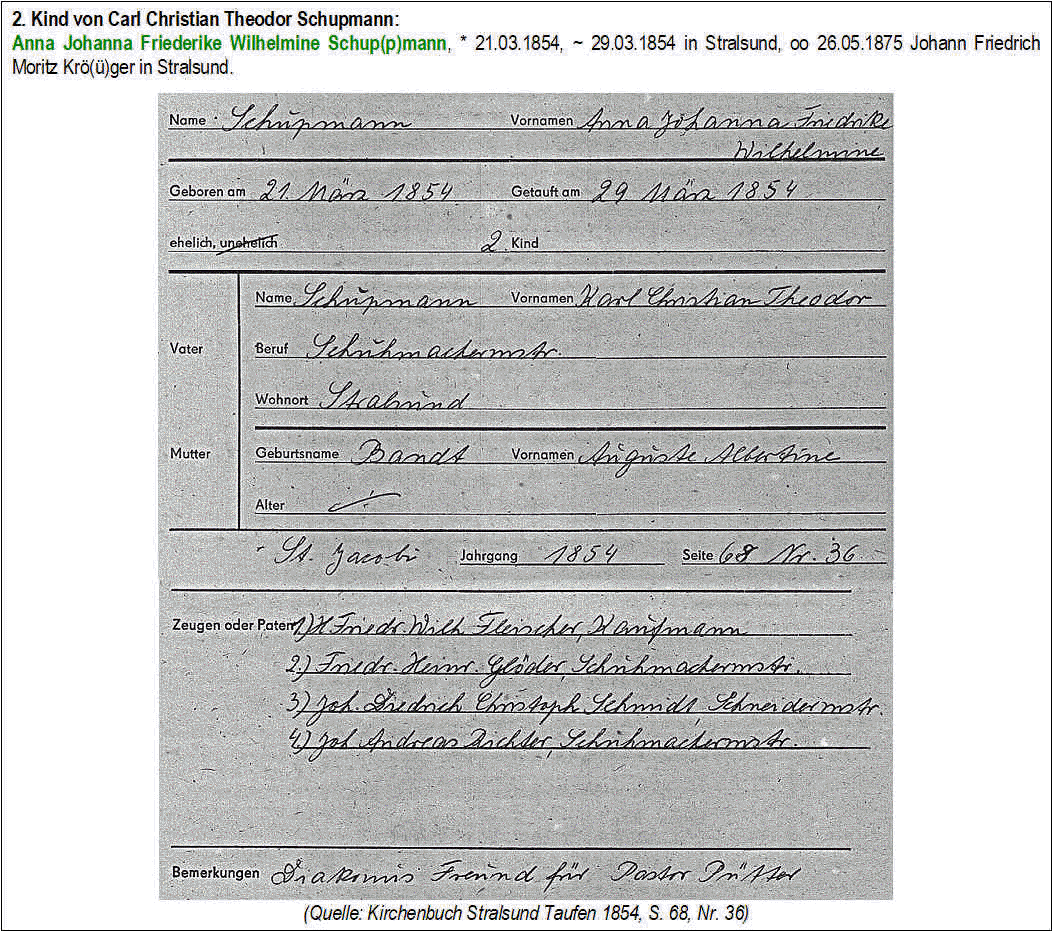 2. Kind von Carl Christian Theodor Schupmann:
Anna Johanna Friederike Wilhelmine Schup(p)mann, * 21.03.1854, ~ 29.03.1854 in Stralsund, oo 26.05.1875 Johann Friedrich
Moritz Krö(ü)ger in Stralsund.
Name Schupmann Vornamen Anna Johanna Friedrike
Wilhelmine
Geboren am 21. März 1854 Getauft am 29 März 1854
ehelich, unehelich 2. Kind
Name Schupmann Vornamen Karl Christian Theodor
Vater Beruf Schuhmachermstr.
Wohnort Stralsund
Mutter Geburtsname Bandt Vornamen Auguste Albertine
Alter
St. Jacobi Jahrgang 1854 Seite 68 Nr. 36
Zeugen oder Paten 1) H Friedr. Wilh Fleischer, Kaufmann
2.) Friedr. Heinr. Glöder, Schuhmachermstr.
3) Joh. Diedrich Christoph Schmidt, Schneidermstr.
4) Joh Andreas Richter, Schuhmachermstr.
Bemerkungen Diakonus Freund für Pastor Pütter
(Quelle: Kirchenbuch Stralsund Taufen 1854, S. 68, Nr. 36)